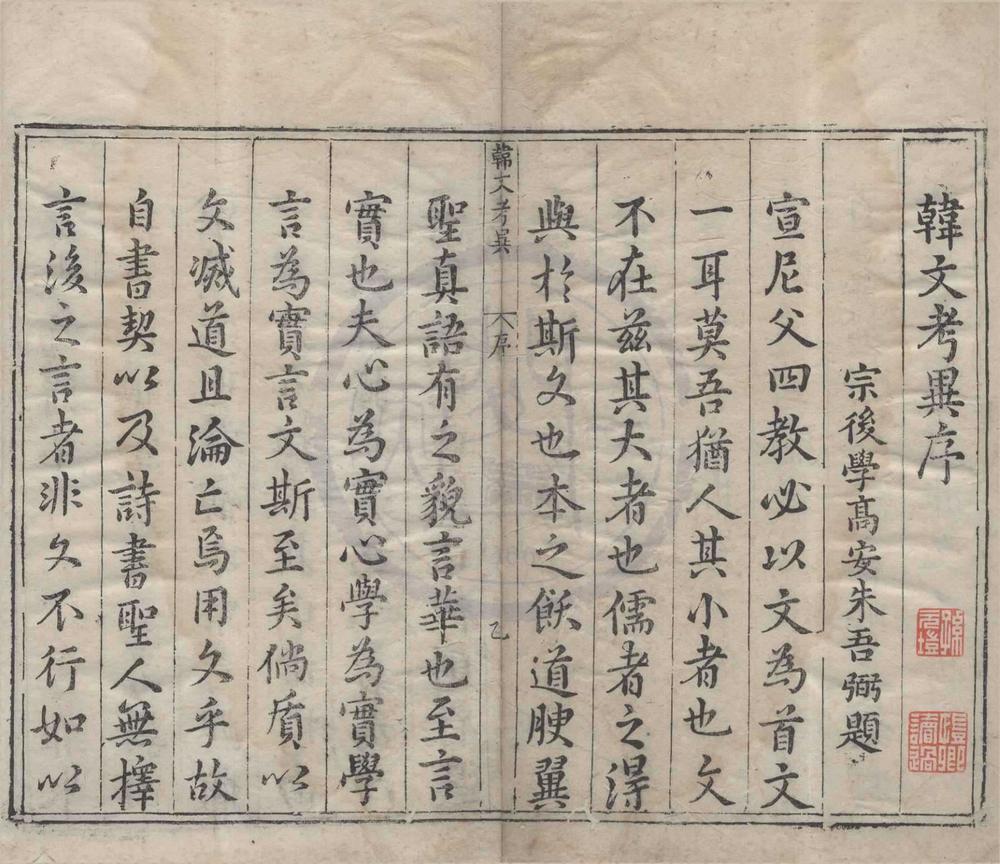 韓文考異序
宗後學高安朱吾弼題
宣尼父四教必以文為首文
一耳莫吾猶人其小者也文
不在茲其大者也儒者之得
與於斯文也本之飫道腴翼
韓文考異
序
乙
聖真語有之貌言華也至言
實也夫心為實心學為實學
言為實言文斯至矣倘質以
文滅道且淪亡焉用文乎故
自書契以及詩書聖人無擇
言後之言者非文不行如以